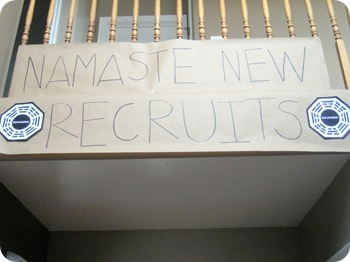 NAMASTE NEW
RECRUITS
DHARMA
DHARMA